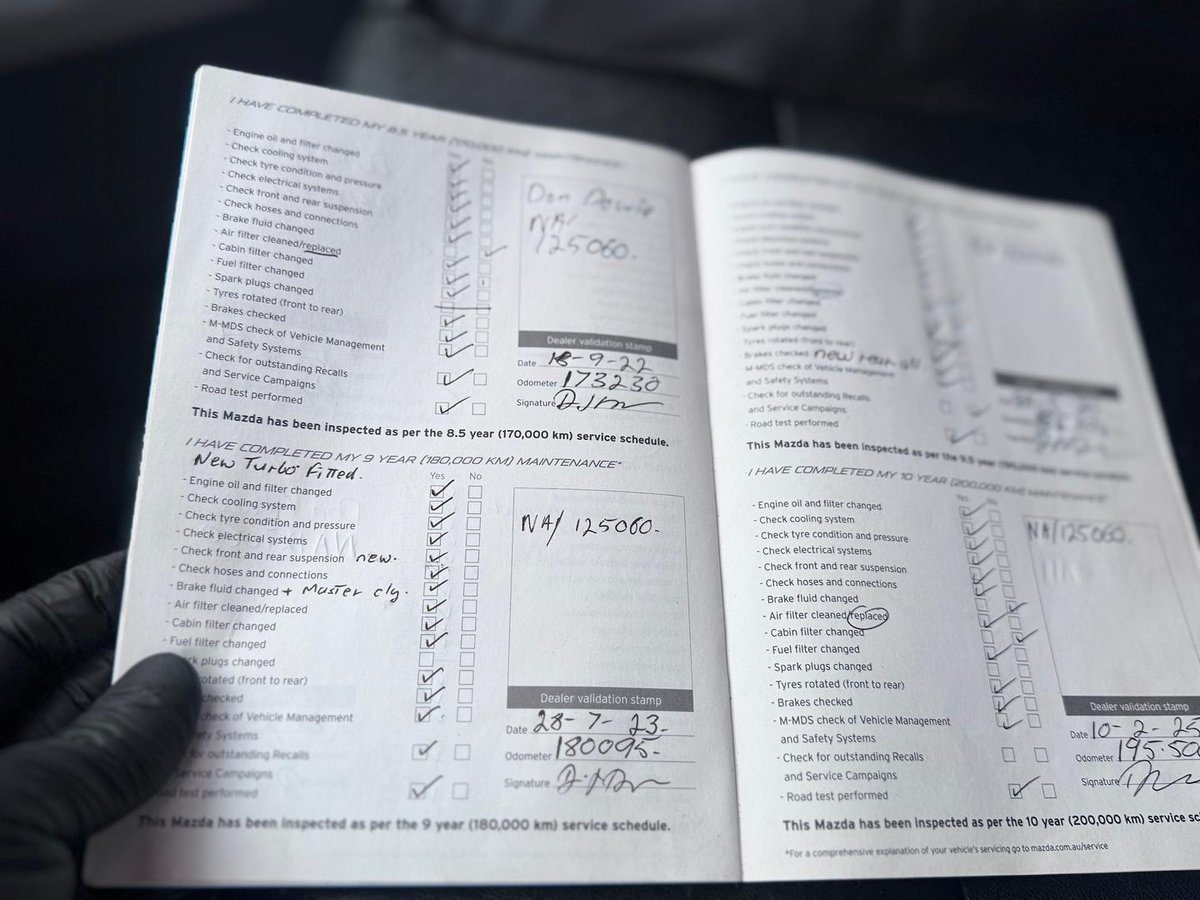 I HAVE COMPLETED MY 8.5 YEAR (170,000 KM) MAINTENANCE*
- Engine oil and filter changed
- Check cooling system
- Check tyre condition and pressure
- Check electrical systems
- Check front and rear suspension
- Check hoses and connections
- Brake fluid changed
- Air filter cleaned/replaced
- Cabin filter changed
- Fuel filter changed
- Spark plugs changed
- Tyres rotated (front to rear)
- Brakes checked
- M-MDS check of Vehicle Management
and Safety Systems
- Check for outstanding Recalls
and Service Campaigns
- Road test performed
Don
NA/
125060.
Dealer validation stamp
Date 18-9-22
Odometer 173230
Signature
This Mazda has been inspected as per the 8.5 year (170,000 km) service schedule.
I HAVE COMPLETED MY 9 YEAR (180,000 KM) MAINTENANCE*
New Turbo Fitted.
Yes No
- Engine oil and filter changed
- Check cooling system
- Check tyre condition and pressure
- Check electrical systems
- Check front and rear suspension new.
- Check hoses and connections
- Brake fluid changed + Master cly.
- Air filter cleaned/replaced
- Cabin filter changed
- Fuel filter changed
rk plugs changed
rotated (front to rear)
checked
check of Vehicle Management
ety Systems
for outstanding Recalls
Service Campaigns
oad test performed
NA/ 125060.
Dealer validation stamp
Date 28-7-23-
Odometer 180095-
Signature
This Mazda has been inspected as per the 9 year (180,000 km) service schedule.
Spark plugs changed
Tyres rotated (front to rear)
- Brakes checked new
- M-MDS check of Vehicle Management
and Safety Systems
- Check for outstanding Recalls
and Service Campaigns
- Road test performed
This Mazda has been inspected as per the 9.5 year
I HAVE COMPLETED MY 10 YEAR (200,000 KM) MAINTENANCE*
Yes No
- Engine oil and filter changed
- Check cooling system
- Check tyre condition and pressure
- Check electrical systems
- Check front and rear suspension
- Check hoses and connections
- Brake fluid changed
- Air filter cleaned/replaced
- Cabin filter changed
- Fuel filter changed
- Spark plugs changed
- Tyres rotated (front to rear)
- Brakes checked
- M-MDS check of Vehicle Management
and Safety Systems
- Check for outstanding Recalls
and Service Campaigns
- Road test performed
NA/125060.
Dealer validation stamp
Date 10-2-25
Odometer 195.50
Signature
This Mazda has been inspected as per the 10 year (200,000 km) service sc
*For a comprehensive explanation of your vehicle's servicing go to mazda.com.au/service